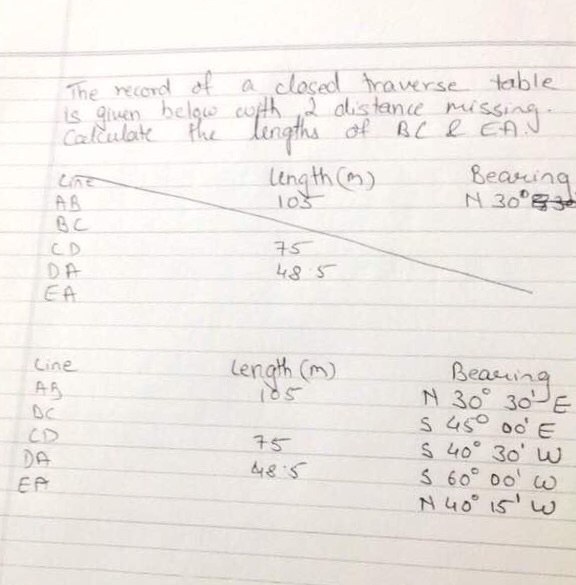 The record of a closed traverse table
is given below with 2 distance missing.
Calculate the lengths of BC & EA.
Line Length (m) Bearing
AB 105 N 30°
BC
CD 75
DA 48.5
EA
Line Length (m) Bearing
AB 105 N 30° 30' E
BC S 45° 00' E
CD 75 S 40° 30' W
DA 48.5 S 60° 00' W
EA N 40° 15' W